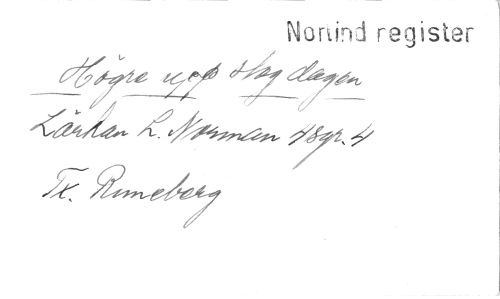 Norlind register
Högre upp steg dagen
Lärkan L. Norman 4 sgr. 4
Tx. Runeberg